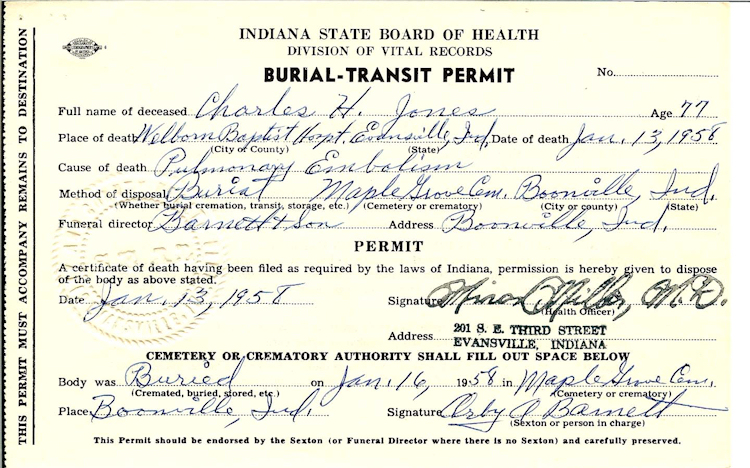 INDIANA STATE BOARD OF HEALTH
DIVISION OF VITAL RECORDS
BURIAL-TRANSIT PERMIT
No.
Full name of deceased Charles H. Jones Age 77
Place of death Welborn Baptist Hospt. Evansville, Ind. Date of death Jan. 13, 1958
(City of County) (State)
Cause of death Pulmonary Embolism
Method of disposal Burial Maple Grove Cem. Boonville, Ind.
(Whether burial cremation, transit, storage, etc.) (Cemetery or crematory) (City or county) (State)
Funeral director Barnett & Son Address Boonville, Ind.
PERMIT
A certificate of death having been filed as required by the laws of Indiana, permission is hereby given to dispose
of the body as above stated.
Date Jan. 13, 1958 Signature Minor Miller, M.D.
(Health Officer)
Address 201 S. E. THIRD STREET
EVANSVILLE, INDIANA
CEMETERY OR CREMATORY AUTHORITY SHALL FILL OUT SPACE BELOW
Body was Buried on Jan. 16, 1958 in Maple Grove Cem.
(Cremated, buried, stored, etc.) (Cemetery or crematory)
Place Boonville, Ind. Signature Orby O Barnett
(Sexton or person in charge)
This Permit should be endorsed by the Sexton (or Funeral Director where there is no Sexton) and carefully preserved.
THIS PERMIT MUST ACCOMPANY REMAINS TO DESTINATION